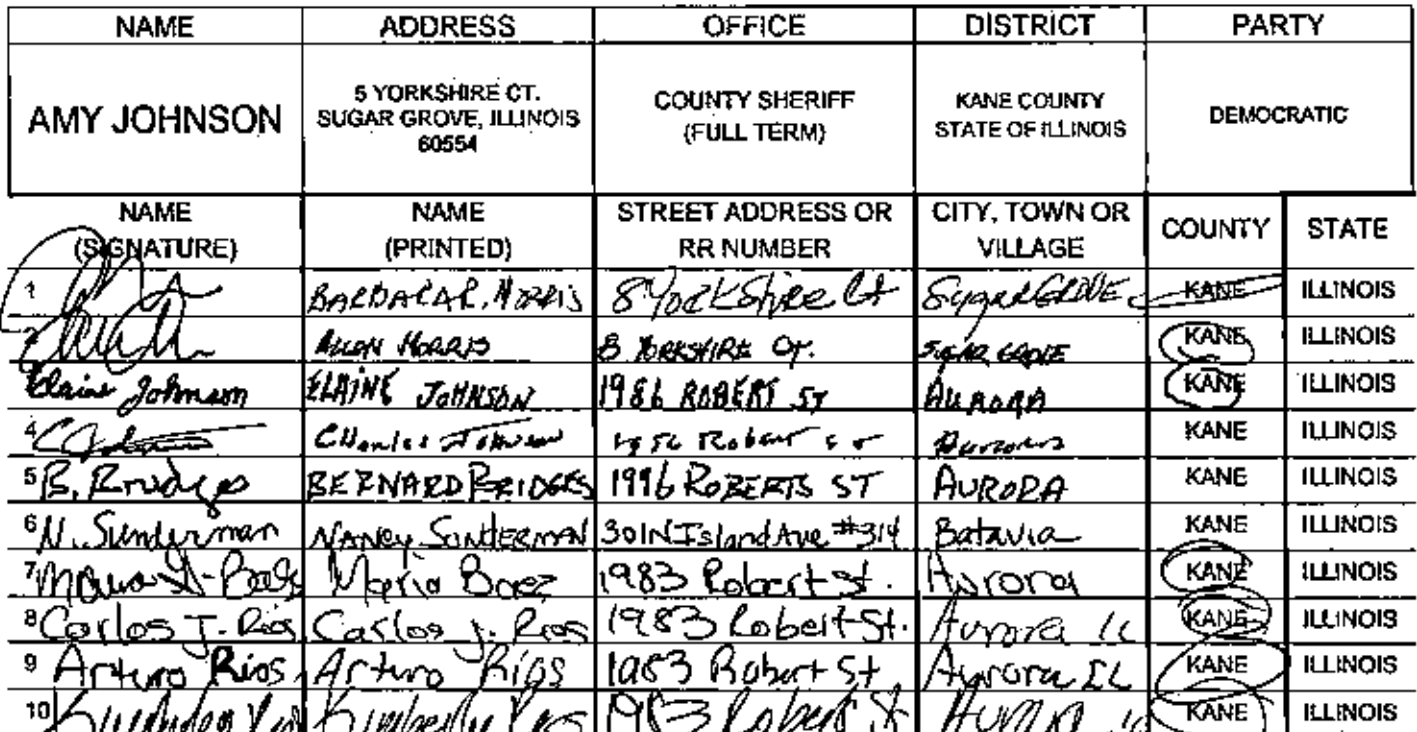 NAME ADDRESS OFFICE DISTRICT PARTY
AMY JOHNSON 5 YORKSHIRE CT. SUGAR GROVE, ILLINOIS 60554 COUNTY SHERIFF (FULL TERM) KANE COUNTY STATE OF ILLINOIS DEMOCRATIC
NAME (SIGNATURE) NAME (PRINTED) STREET ADDRESS OR RR NUMBER CITY, TOWN OR VILLAGE COUNTY STATE
1 BARBARA R. MORRIS 8 Yorkshire Ct Sugar GROVE KANE ILLINOIS
2 ALLEN MORRIS 8 YORKSHIRE CT. SUGAR GROVE KANE ILLINOIS
Elaine Johnson ELAINE JOHNSON 1986 ROBERT ST AURORA KANE ILLINOIS
4 Charles Johnson Robert ST Aurora KANE ILLINOIS
5 B. Bridges BERNARD BRIDGES 1996 ROBERTS ST AURORA KANE ILLINOIS
6 N. Sunderman NANCY SUNDERMAN 301N Island Ave #314 Batavia KANE ILLINOIS
7 Maria Baez 1983 Robert St. Aurora KANE ILLINOIS
8 Carlos J. Rios Carlos J. Rios 1983 Robert St. Aurora IL KANE ILLINOIS
9 Arturo Rios Arturo Rios 1983 Robert St Aurora IL KANE ILLINOIS
10 Kimberly Rios 1983 Robert St KANE ILLINOIS